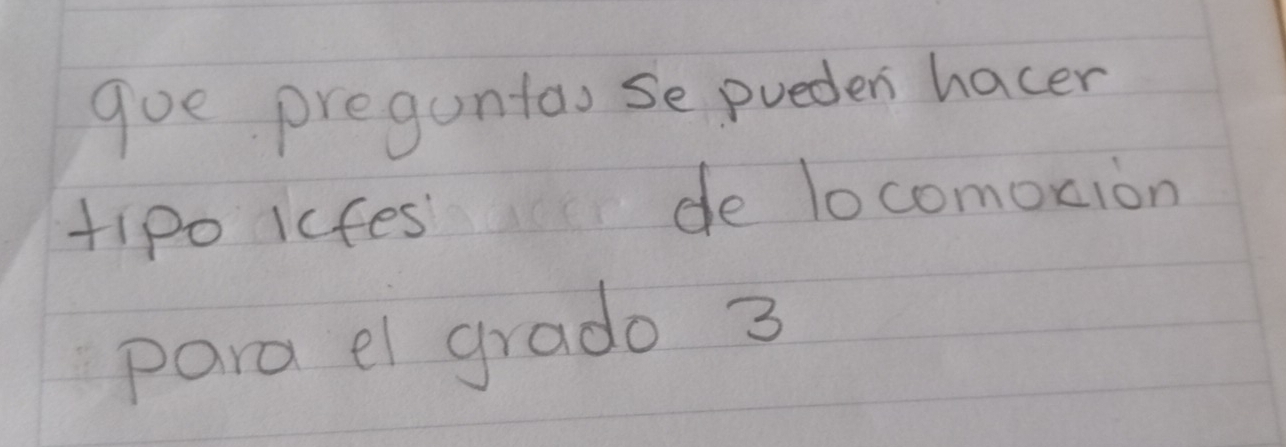 que preguntas se pueden hacer
tipo icfes de locomoción
para el grado 3